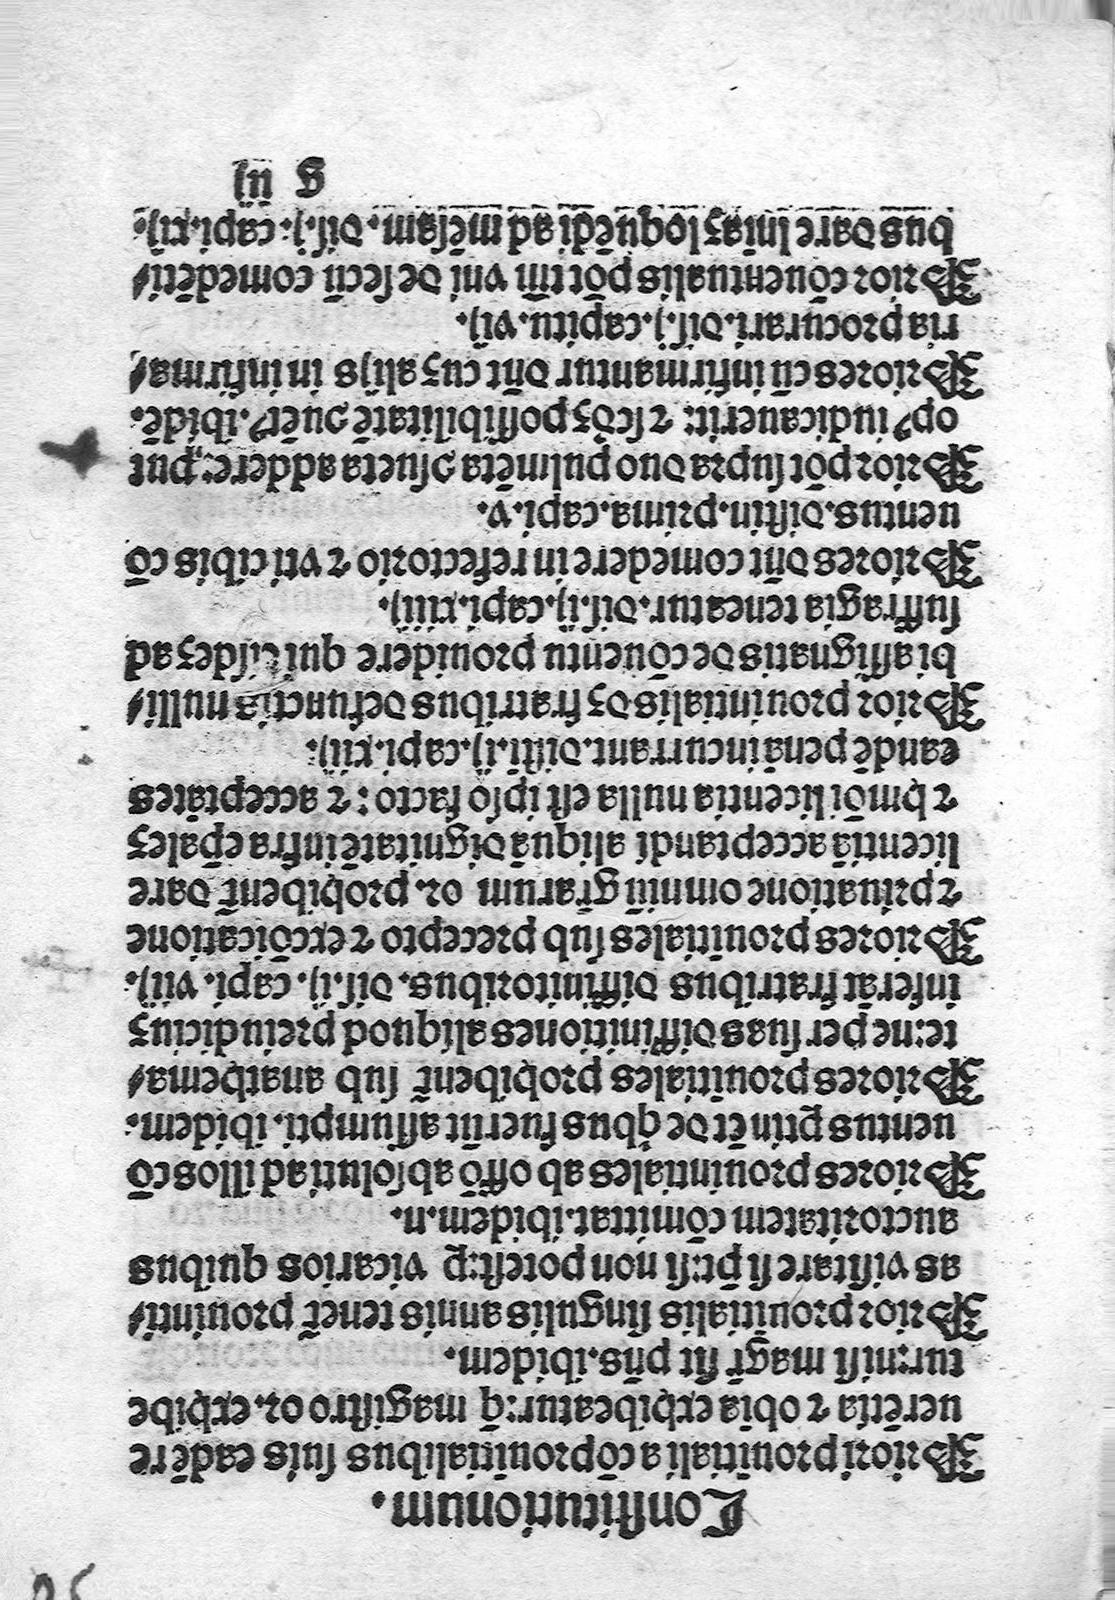 Constitutionum.
Priori prouĩtiali a cõprouĩtialibus suis eadẽ re
uerẽtia ⁊ obĩa exhibeatur: q̃ magistro or. exhibe
tur: nisi magr̃ sit pñs. ibidem.
Prior prouĩtialis singulis annis tenet̃ prouinti/
as visitare si põt: si non potest: ꝑ vicarios quibus
auctoritatem cõmittat. ibidem. n.
Priores prouintiales ab offõ absoluti ad illos cõ
uentus ꝑtinẽt de qbus fuerũt assumpti. ibidem.
Priores prouĩtiales prohibent̃ sub anathema/
te: ne per suas diffinitiones aliquod preiudiciuʒ
inferãt fratribus diffinitoribus. dis. ij. capi. viij.
Priores prouĩtiales sub precepto ⁊ excõicatione
⁊ priuatione omniũ gr̃arum or. prohibent̃ dare
licentiã acceptandi aliquã dignitatẽ infra ep̃aleʒ
⁊ hmõi licentia nulla est ipso facto: ⁊ acceptãtes
eandẽ penã incurrant. distĩ. ij. capi. xiij.
Prior prouintialis dʒ fratribus defunctis nulli/
bi assignatis de cõuentu prouidere qui eisdeʒ ad
suffragia teneatur. dis. ij. capi. xiiij.
Priores dñt comedere in refectorio ⁊ vti cibis cõ
uentus. distin. prima. capi. v.
Prior põt supra duo pulmẽta ↄsueta addere: put
opꝰ iudicauerit: ⁊ scḋʒ possibilitatẽ ↄuẽtꝰ. ibidẽ.
Priores cũ infirmantur dñt cuʒ alijs in infirma/
ria procurari. dis. j. capitu. vij.
Prior cõuentualis põt tm̃ vni de secũ comedẽti/
bus dare lñiaʒ loquẽdi ad mẽsam. dis. j. capi. xij.
G iij